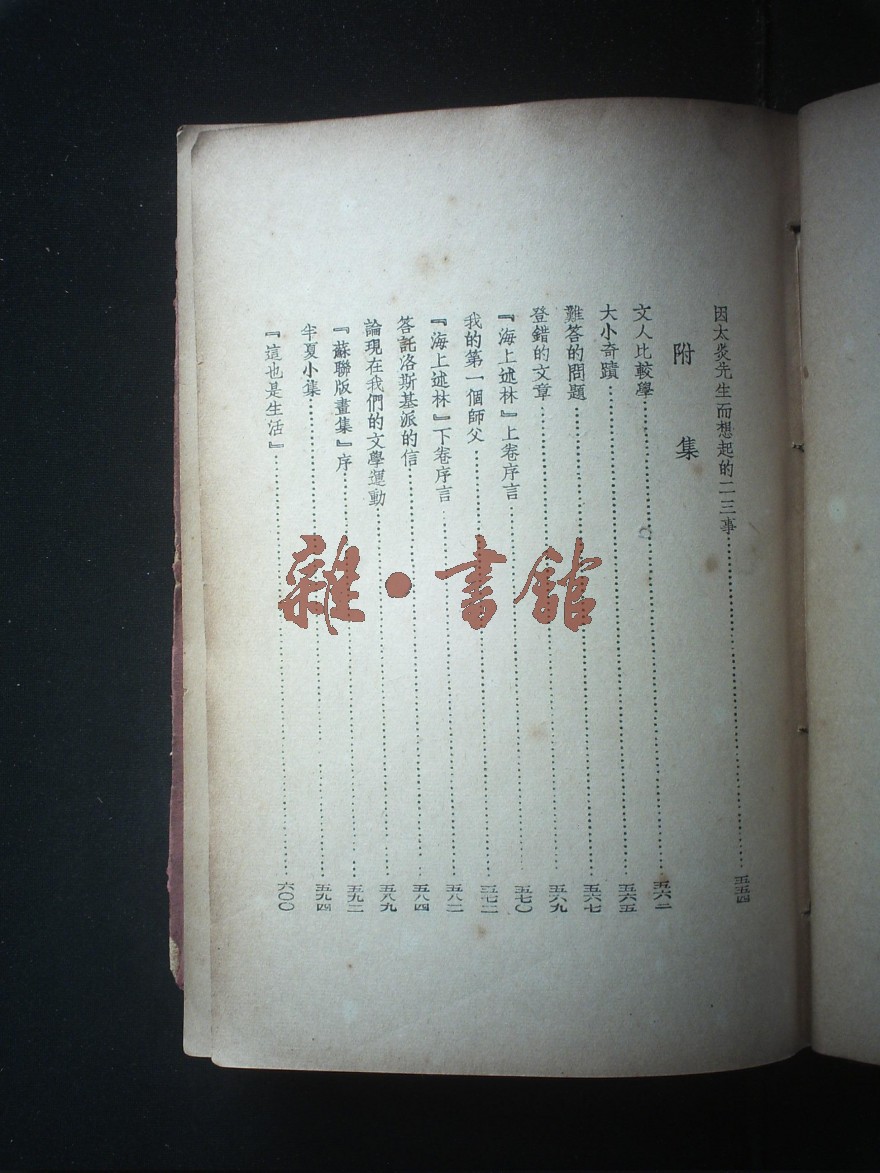 因太炎先生而想起的二三事……五五四
附集
文人比較學……五六二
大小奇蹟……五六五
難答的問題……五六七
登錯的文章……五六九
『海上述林』上卷序言……五七〇
我的第一個師父……五七二
『海上述林』下卷序言……五八二
答託洛斯基派的信……五八四
論現在我們的文學運動……五八九
『蘇聯版畫集』序……五九二
半夏小集……五九四
『這也是生活』……六〇〇
雜·書館